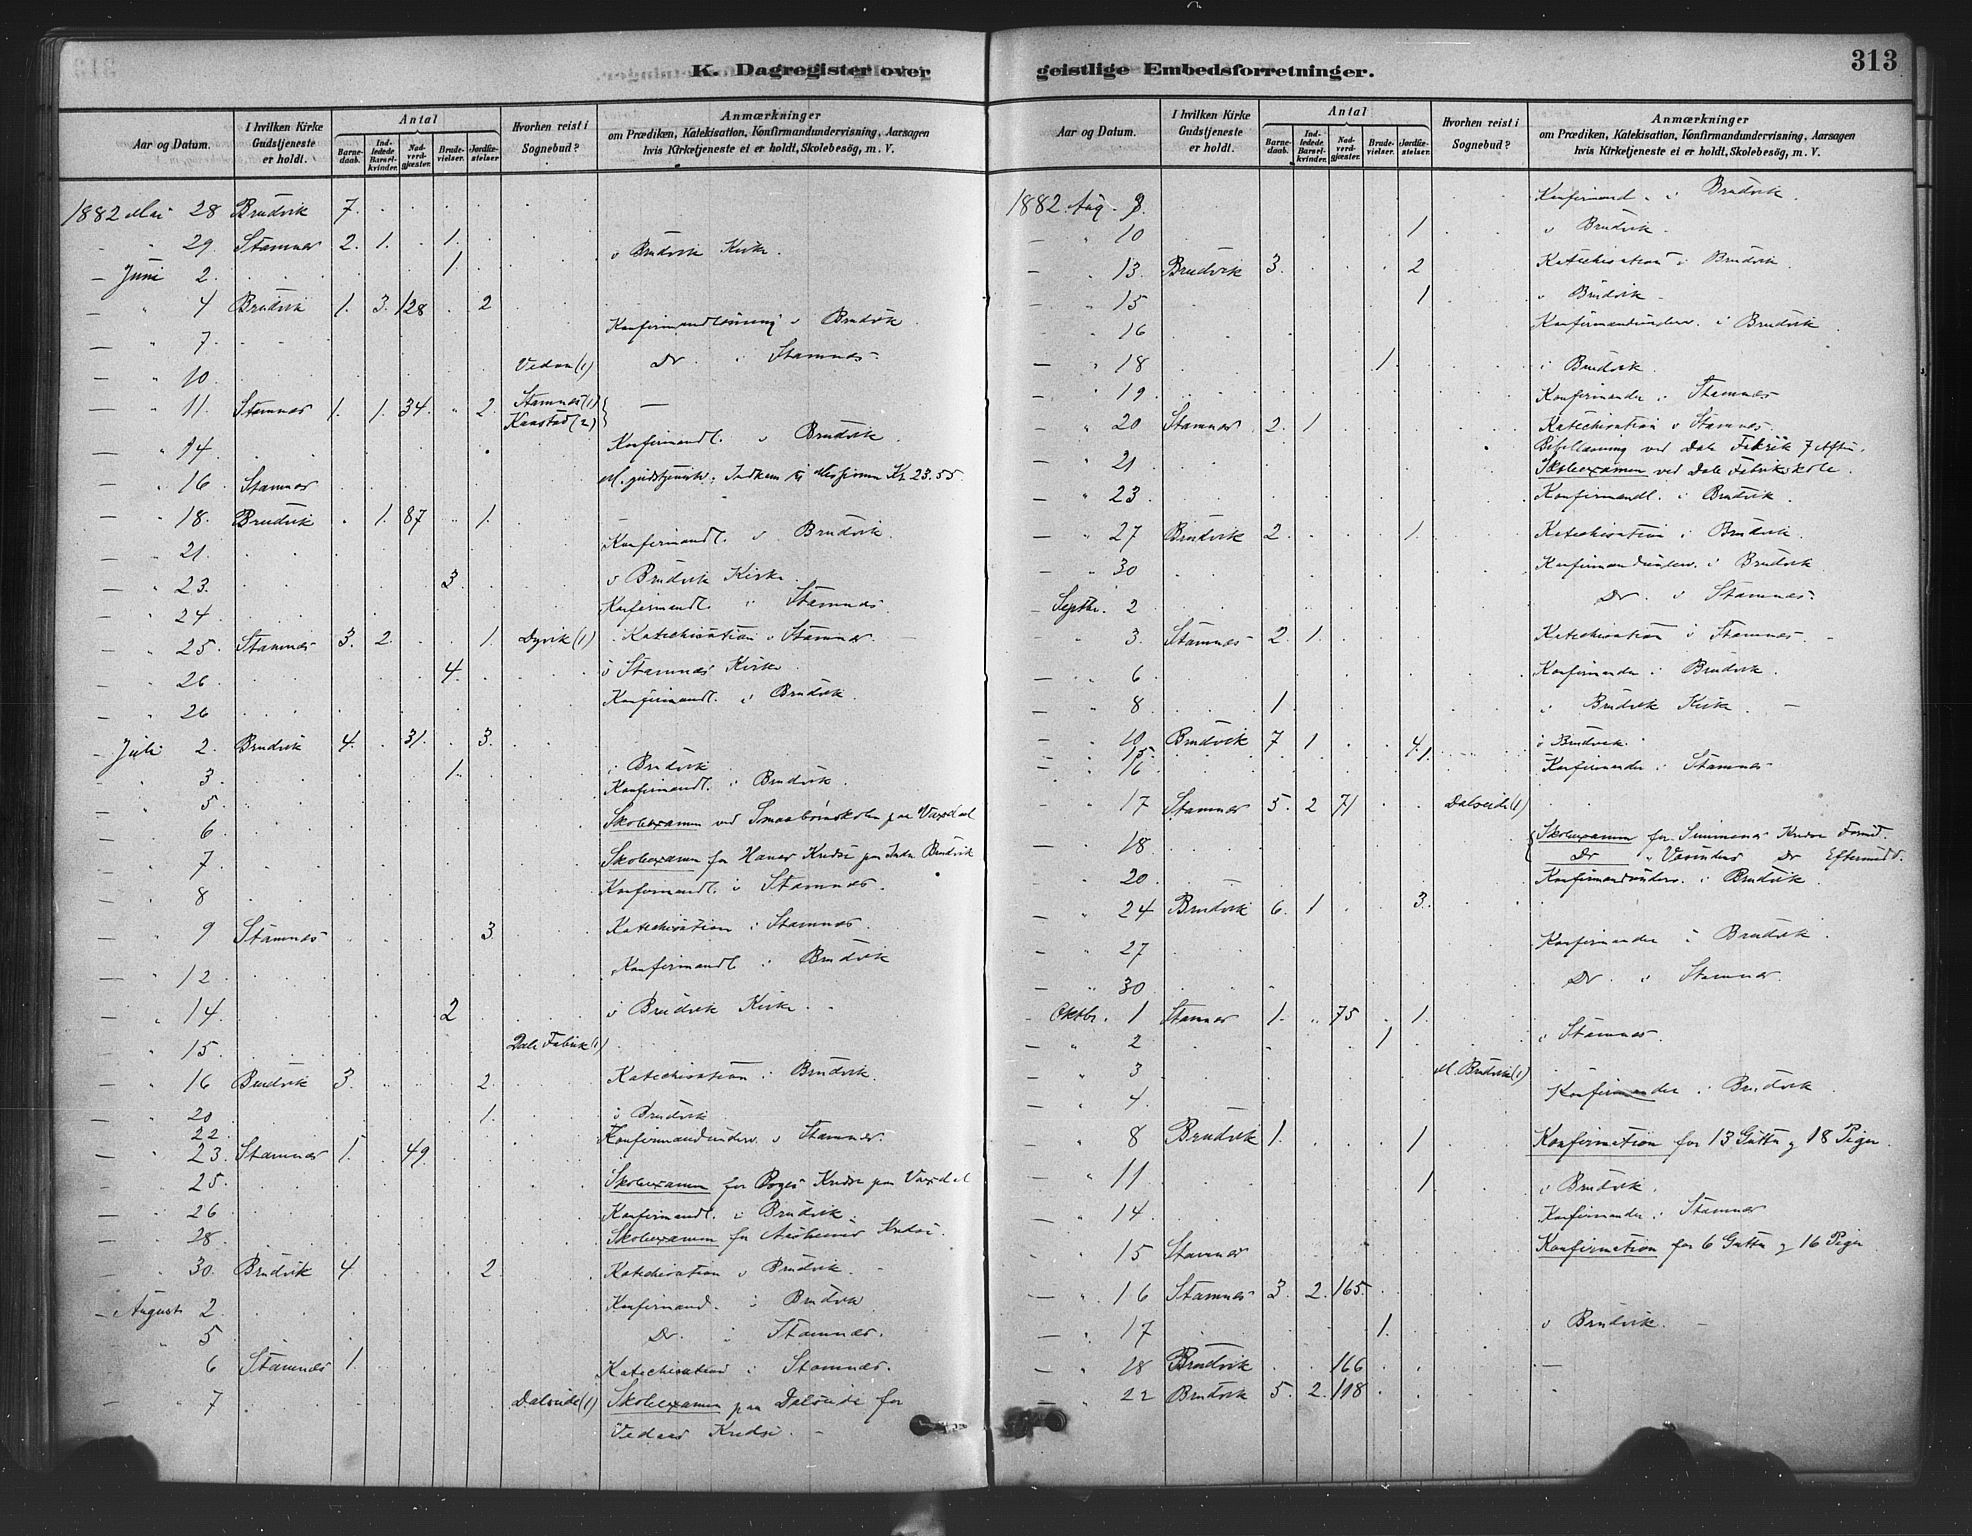 K. Dagregister over
Aar og Datum. I hvilken Kirke Gudstjeneste er holdt. Antal Barnedaab. Indledede Barselkvinder. Nadverdgjæster. Brudevielser. Jordfæstelser Hvorhen reist i Sognebud? Anmærkninger om Prædiken, Katekisation, Konfirmandundervisning, Aarsagen hvis Kirketjeneste ei er holdt, Skolebesøg, m. V.
1882 Mai 28 Brudvik 7.
— " 29 Stamnes 2. 1. 1.
— Juni 2 1 i Brudvik Kirke.
— " 4 Brudvik 1. 3. 128 2
— " 7. Konfirmandlæsning i Brudvik
— " 10 Vedaa (1) Do. i Stamnes
— " 11. Stamnes 1. 1. 34. 2. Stamnes (1) —
Kaastad (2)
— " 14 Konfirmandl. i Brudvik
— " 16 Stamnes M. gudstjeneste. Indkom til Missionen Kr. 23.55
— " 18. Brudvik 1. 87 1.
— " 21. Konfirmandl. i Brudvik.
— " 23. 3. i Brudvik Kirke.
— " 24 Konfirmandl. i Stamnes.
— " 25 Stamnes 3. 2. 1. Dyvik (1) Katechisation i Stamnes —
— " 26 4. i Stamnes Kirke
— " 26 Konfirmandl. i Brudvik
— Juli 2. Brudvik 4. 31. 3.
" 3 1. i Brudvik
" 5 Konfirmandl. i Brudvik.
— " 6 Skoleexamen ved Smaabørnskolen paa Vaxdal
— " 7 Skoleexamen for Kredse paa Indre Brudvik
— " 8 Konfirmandl. i Stamnes.
— " 9 Stamnes 3 Katechisation i Stamnes.
— " 12 Konfirmandl. i Brudvik
— " 14 2 i Brudvik Kirke
— " 15 Dale Fabrik (1)
— " 16 Brudvik 3. 2. Katechisation i Brudvik.
— " 20 1. i Brudvik
22. Konfirmandunderv. i Stamnes.
— " 23. Stamnes 1. 49.
— " 25 Skoleexamen for Boges Kredse paa Vaxdal
— " 26 Konfirmandl. i Brudvik.
— " 28 Skoleexamen for Kredse.
— " 30. Brudvik 4 2 Katechisation i Brudvik. —
— August 2 Konfirmand. i Brudvik
— " 5 Do. i Stamnes.
— " 6 Stamnes 1. Katechisation i Stamnes.
— " 7 Dalseide (1) Skoleexamen paa Dalseide for
Vedaas Kredse. —
geistlige Embedsforretninger. 313
Aar og Datum. I hvilken Kirke Gudstjeneste er holdt. Antal Barnedaab. Indledede Barselkvinder. Nadverdgjæster. Brudevielser. Jordfæstelser. Hvorhen reist i Sognebud? Anmærkninger om Prædiken, Katekisation, Konfirmandundervisning, Aarsagen hvis Kirketjeneste ei er holdt, Skolebesøg, m. V.
1882. Aug. 9. Konfirmand. i Brudvik
— " 10 1 i Brudvik.
— " 13. Brudvik 3. 2 Katechisation i Brudvik
— " 15 1 i Brudvik
— " 16 Konfirmandunderv. i Brudvik
— " 18 1. i Brudvik.
— " 19. Konfirmander i Stamnes
— " 20 Stamnes 2. 1 Katechisation i Stamnes.
— " 21 Bibellæsning ved Dale Fabrik 7 Aften.
Skoleexamen ved Dale Fabrikskole.
— " 23 Konfirmandl. i Brudvik.
— " 27 Brudvik 2 1. Katechisation i Brudvik.
— " 30 Konfirmandunderv. i Brudvik
— Septbr. 2 Do. i Stamnes.
— " 3. Stamnes 2. 1. Katechisation i Stamnes. —
— " 6 Konfirmander i Brudvik.
— " 8 1 i Brudvik Kirke —
— " 10 Brudvik 7 1 4.
— 15 1. i Brudvik.
— " 16 Konfirmander i Stamnes
" 17 Stamnes 5. 2 71 Dalseide (1)
— " 18 Skoleexamen for Simmenes Kredse Formid.
Do " Do Eftermid.
— " 20 Konfirmandunderv. i Brudvik.
— " 24 Brudvik 6. 1 3.
— " 27 Konfirmander i Brudvik.
— " 30 Do. i Stamnes
— Oktbr. 1 Stamnes 1. " 75 1.
— " 2 1 i Stamnes.
— " 3 M. Brudvik (1)
— " 4. Konfirmander i Brudvik
— " 8 Brudvik 1. 1 Konfirmation for 13 Gutter og 18 Piger.
— " 11 1 i Brudvik.
— " 14 Konfirmander i Stamnes
— " 15 Stamnes Konfirmation for 6 Gutter og 16 Piger
— " 16 Stamnes 3 2. 165.
— " 17 1. i Brudvik. —
— " 18 Brudvik 166 —
— " 22 Brudvik 5. 2. 118 —